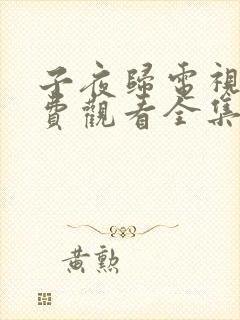 子夜歸電視
費觀看全集
黃勲